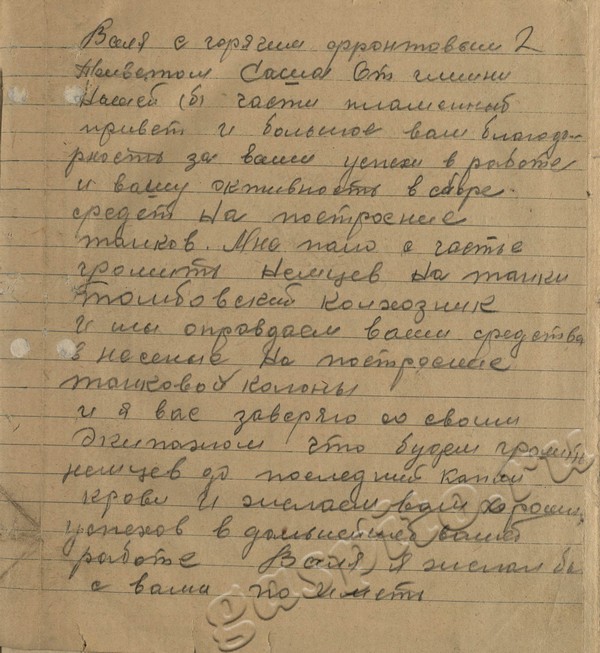 Валя с горячим фронтовым 2
приветом Саша От имини
нашей (б) части пламеный
привет и большое вам благода-
рность за ваши успехи в работе
и вашу активность в сборе
средств на построение
танков. Мне пало с частье
громить немцев на танки
тамбовский колхозник
и мы оправдаем ваши средства
в несеные на построение
танковой колоны
и я вас заверяю со своим
Экипажом что будем громить
немцев до последний капли
крови и желаем вам хороших
успехов в дальнейшей вашей
работе Валя я желал бы
с вами по иметь
gaspito.ru